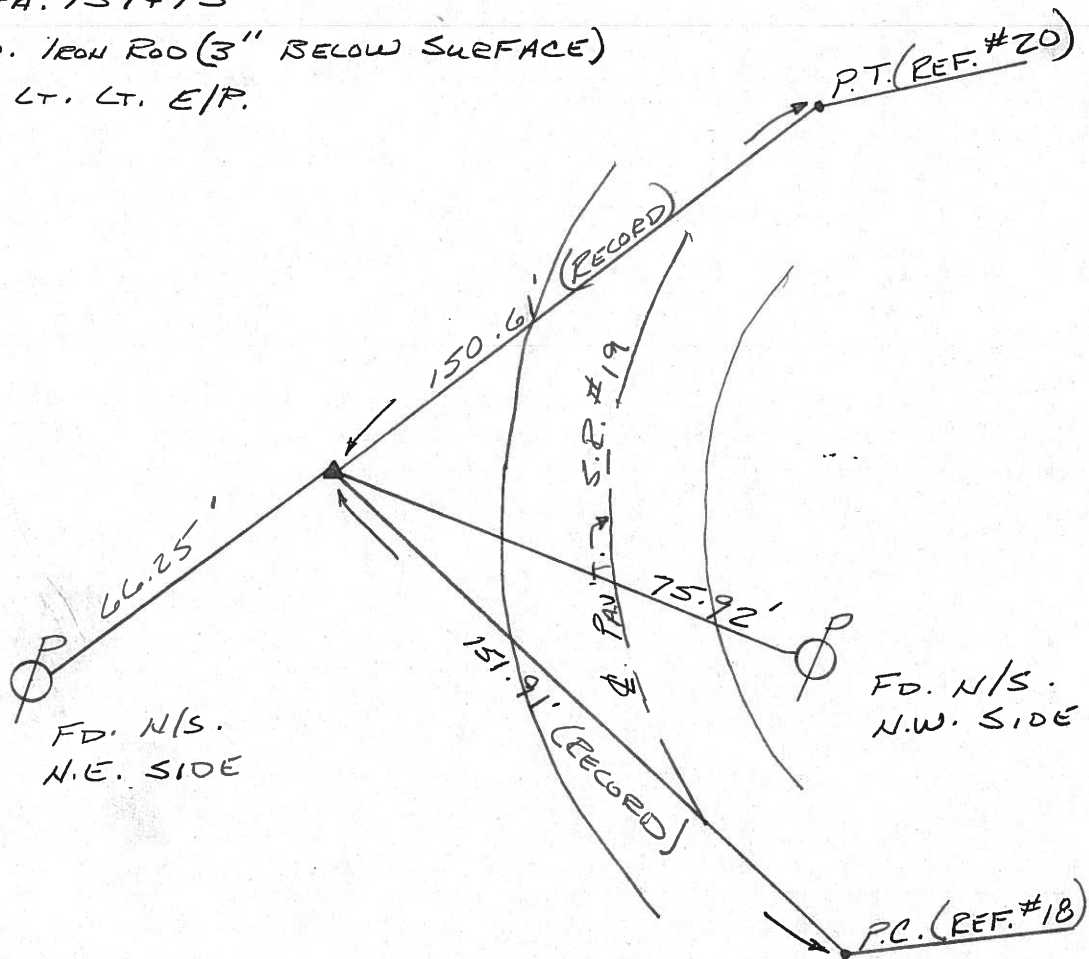 IRON ROD (3" BELOW SURFACE)
LT. LT. E/P.
P.T. (REF. #20)
(RECORD)
150.61'
S.R. #19
66.25'
PAV'T.
75.92'
P
P
151.91' (RECORD)
FD. N/S.
N.E. SIDE
FD. N/S.
N.W. SIDE
P.C. (REF. #18)